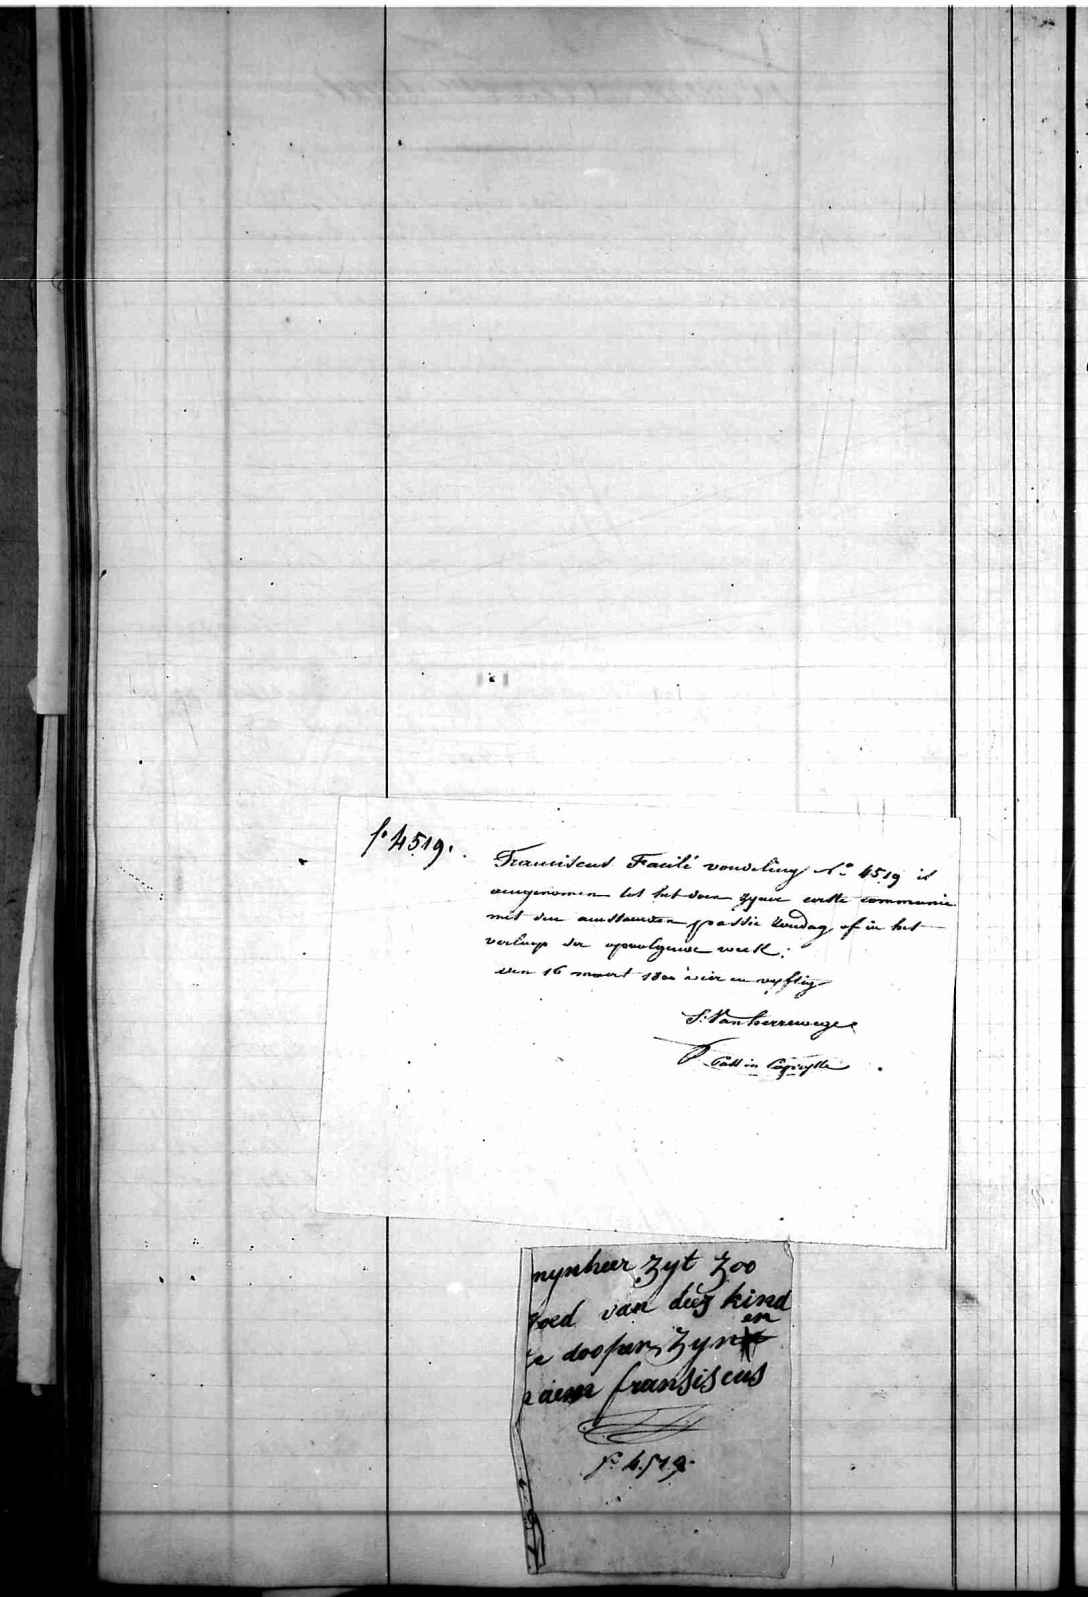 f° 4519.
Franciscus Facilé vondeling N° 4519 is
aengenomen tot het doen zyner eerste communie
met den aenstaenden passie zondag of in het
verloop der opvolgende week.
den 16 maert 1800 vier en vyftig
S. Van herrewege
Past in
mynheer zyt zoo
goed van deez kind
te doopen zynen
naem fransiscus
f° 4519.